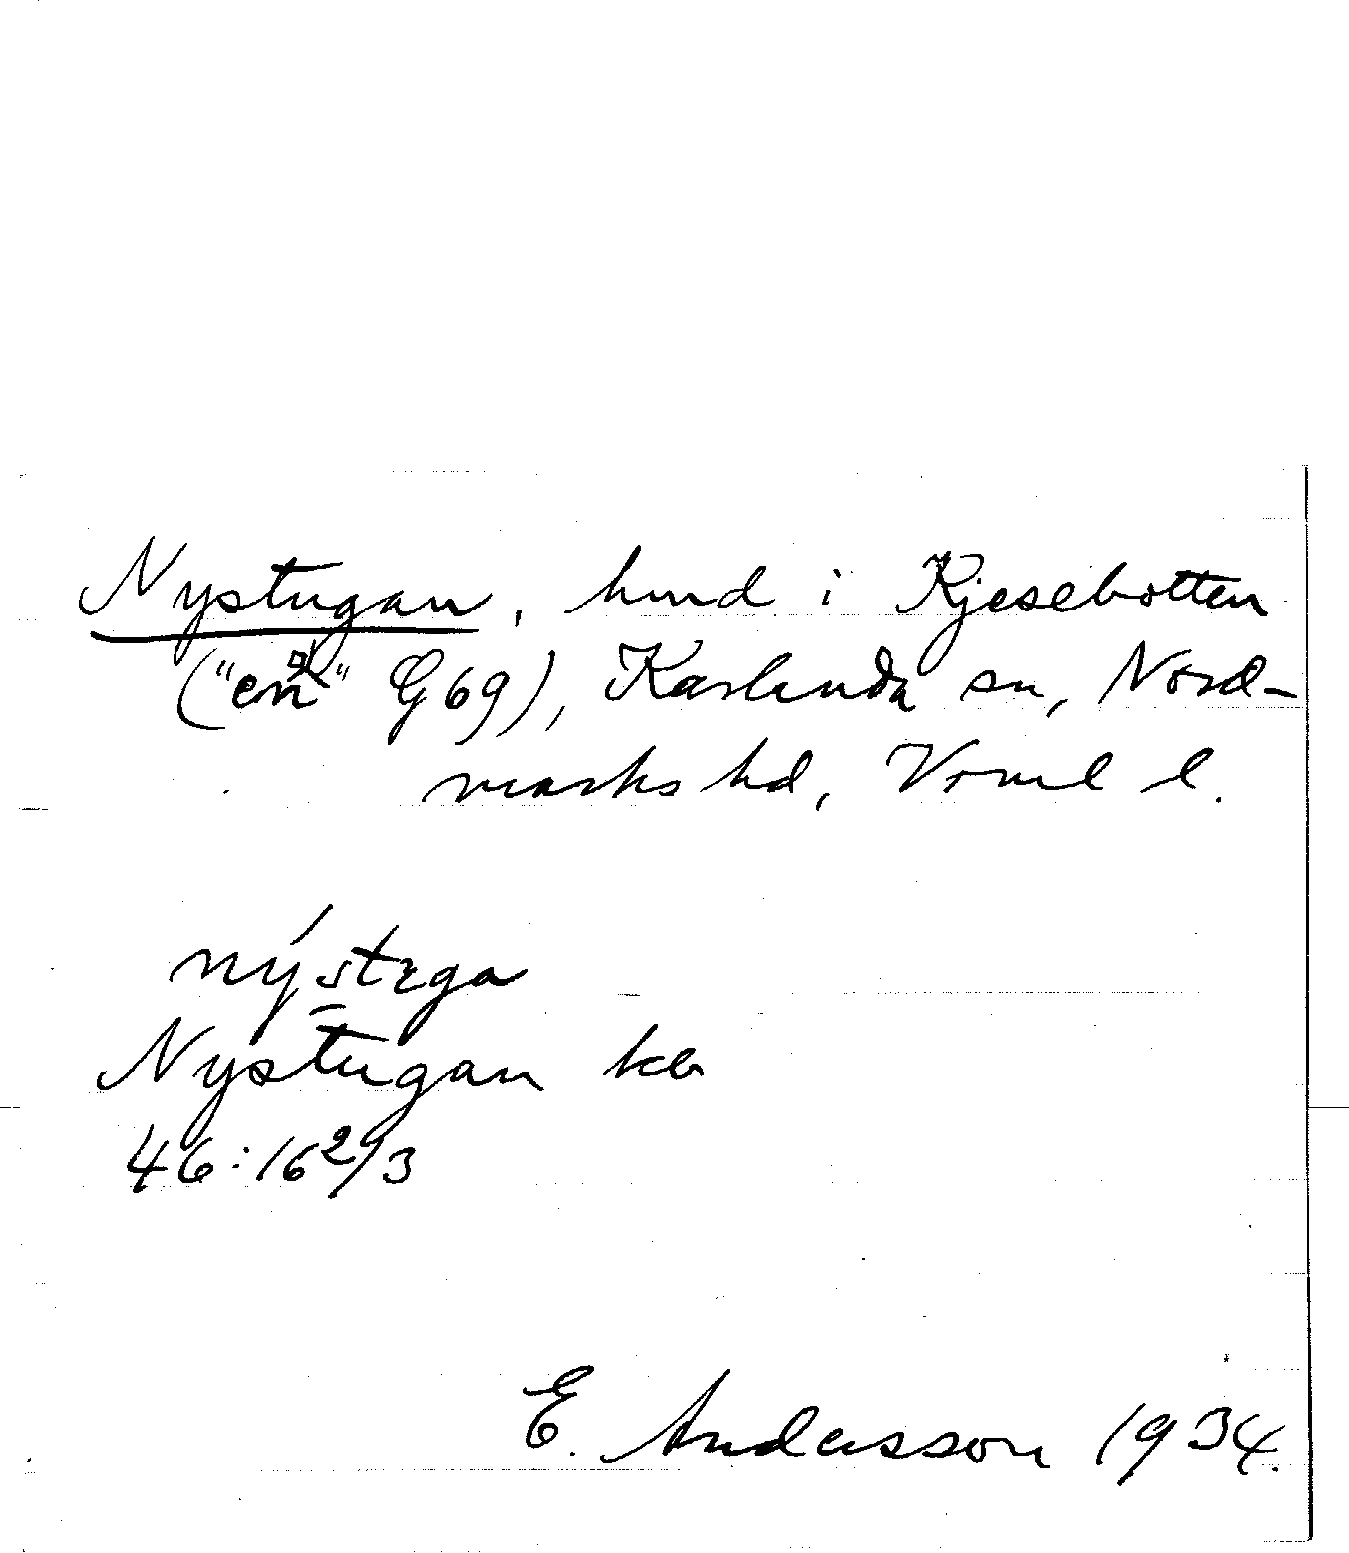 Nystugan, hmd i Kjesebotten
("en" G 69), Karlanda sn, Nord-
marks hd, Vrml l.
nýstɛga
Nystugan kb
46:16 2/3
E. Andersson 1934.